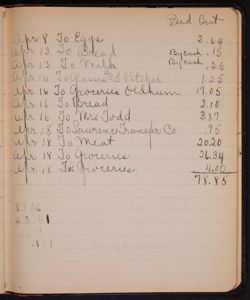 Paid Out
Apr 8 To Eggs 2.64
Apr 13 To Bread By Cash .15
Apr 13 To Milk By Cash .26
Apr 14 To Glasses & Pitcher 1.25
Apr 16 To Groceries Oldham 17.05
Apr 16 To Bread 2.10
Apr 16 To Mrs Todd 3.87
Apr. 18 To Lawrence Transfer Co .95
Apr. 18 To Meat 20.20
Apr. 18 To Groceries 26.34
Apr. 18 To Groceries 4.00
78.85